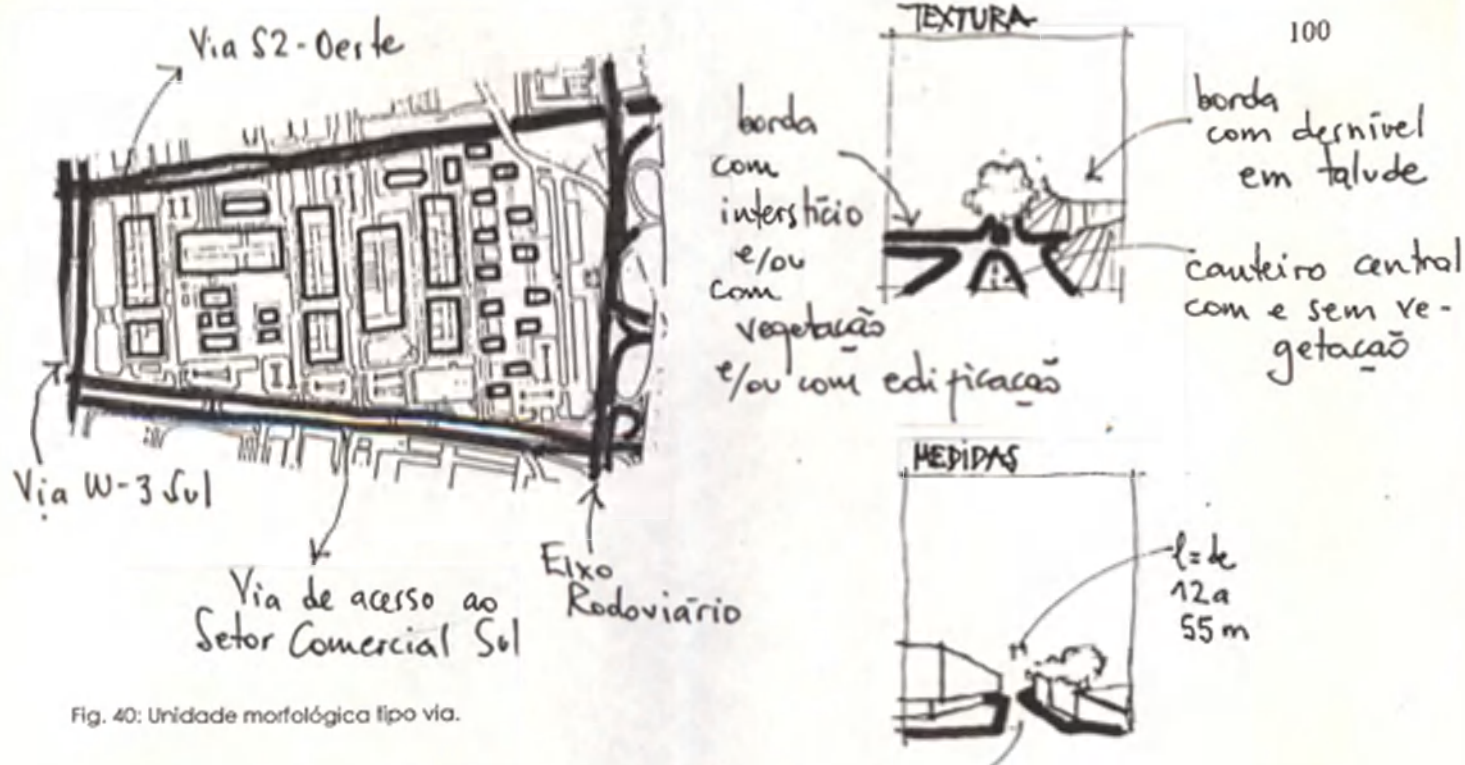 100
Via S2-Oeste
Via W-3 Sul
Via de acesso ao
Setor Comercial Sul
Eixo
Rodoviário
Fig. 40: Unidade morfológica tipo via.
TEXTURA
borda
com
interstício
e/ou
com
vegetação
e/ou com edificação
borda
com desnível
em talude
canteiro central
com e sem ve-
getação
MEDIDAS
l=de
12 a
55 m